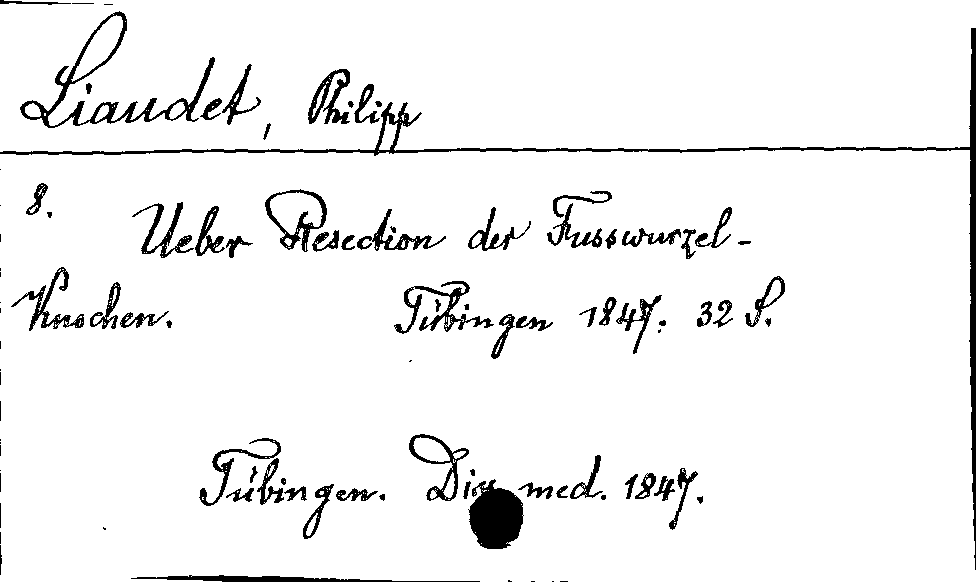 Liaudet, Philipp
8.
Ueber Resection der Fusswurzel-
Knochen. Tübingen 1847. 32 S.
Tübingen. Diss. med. 1847.